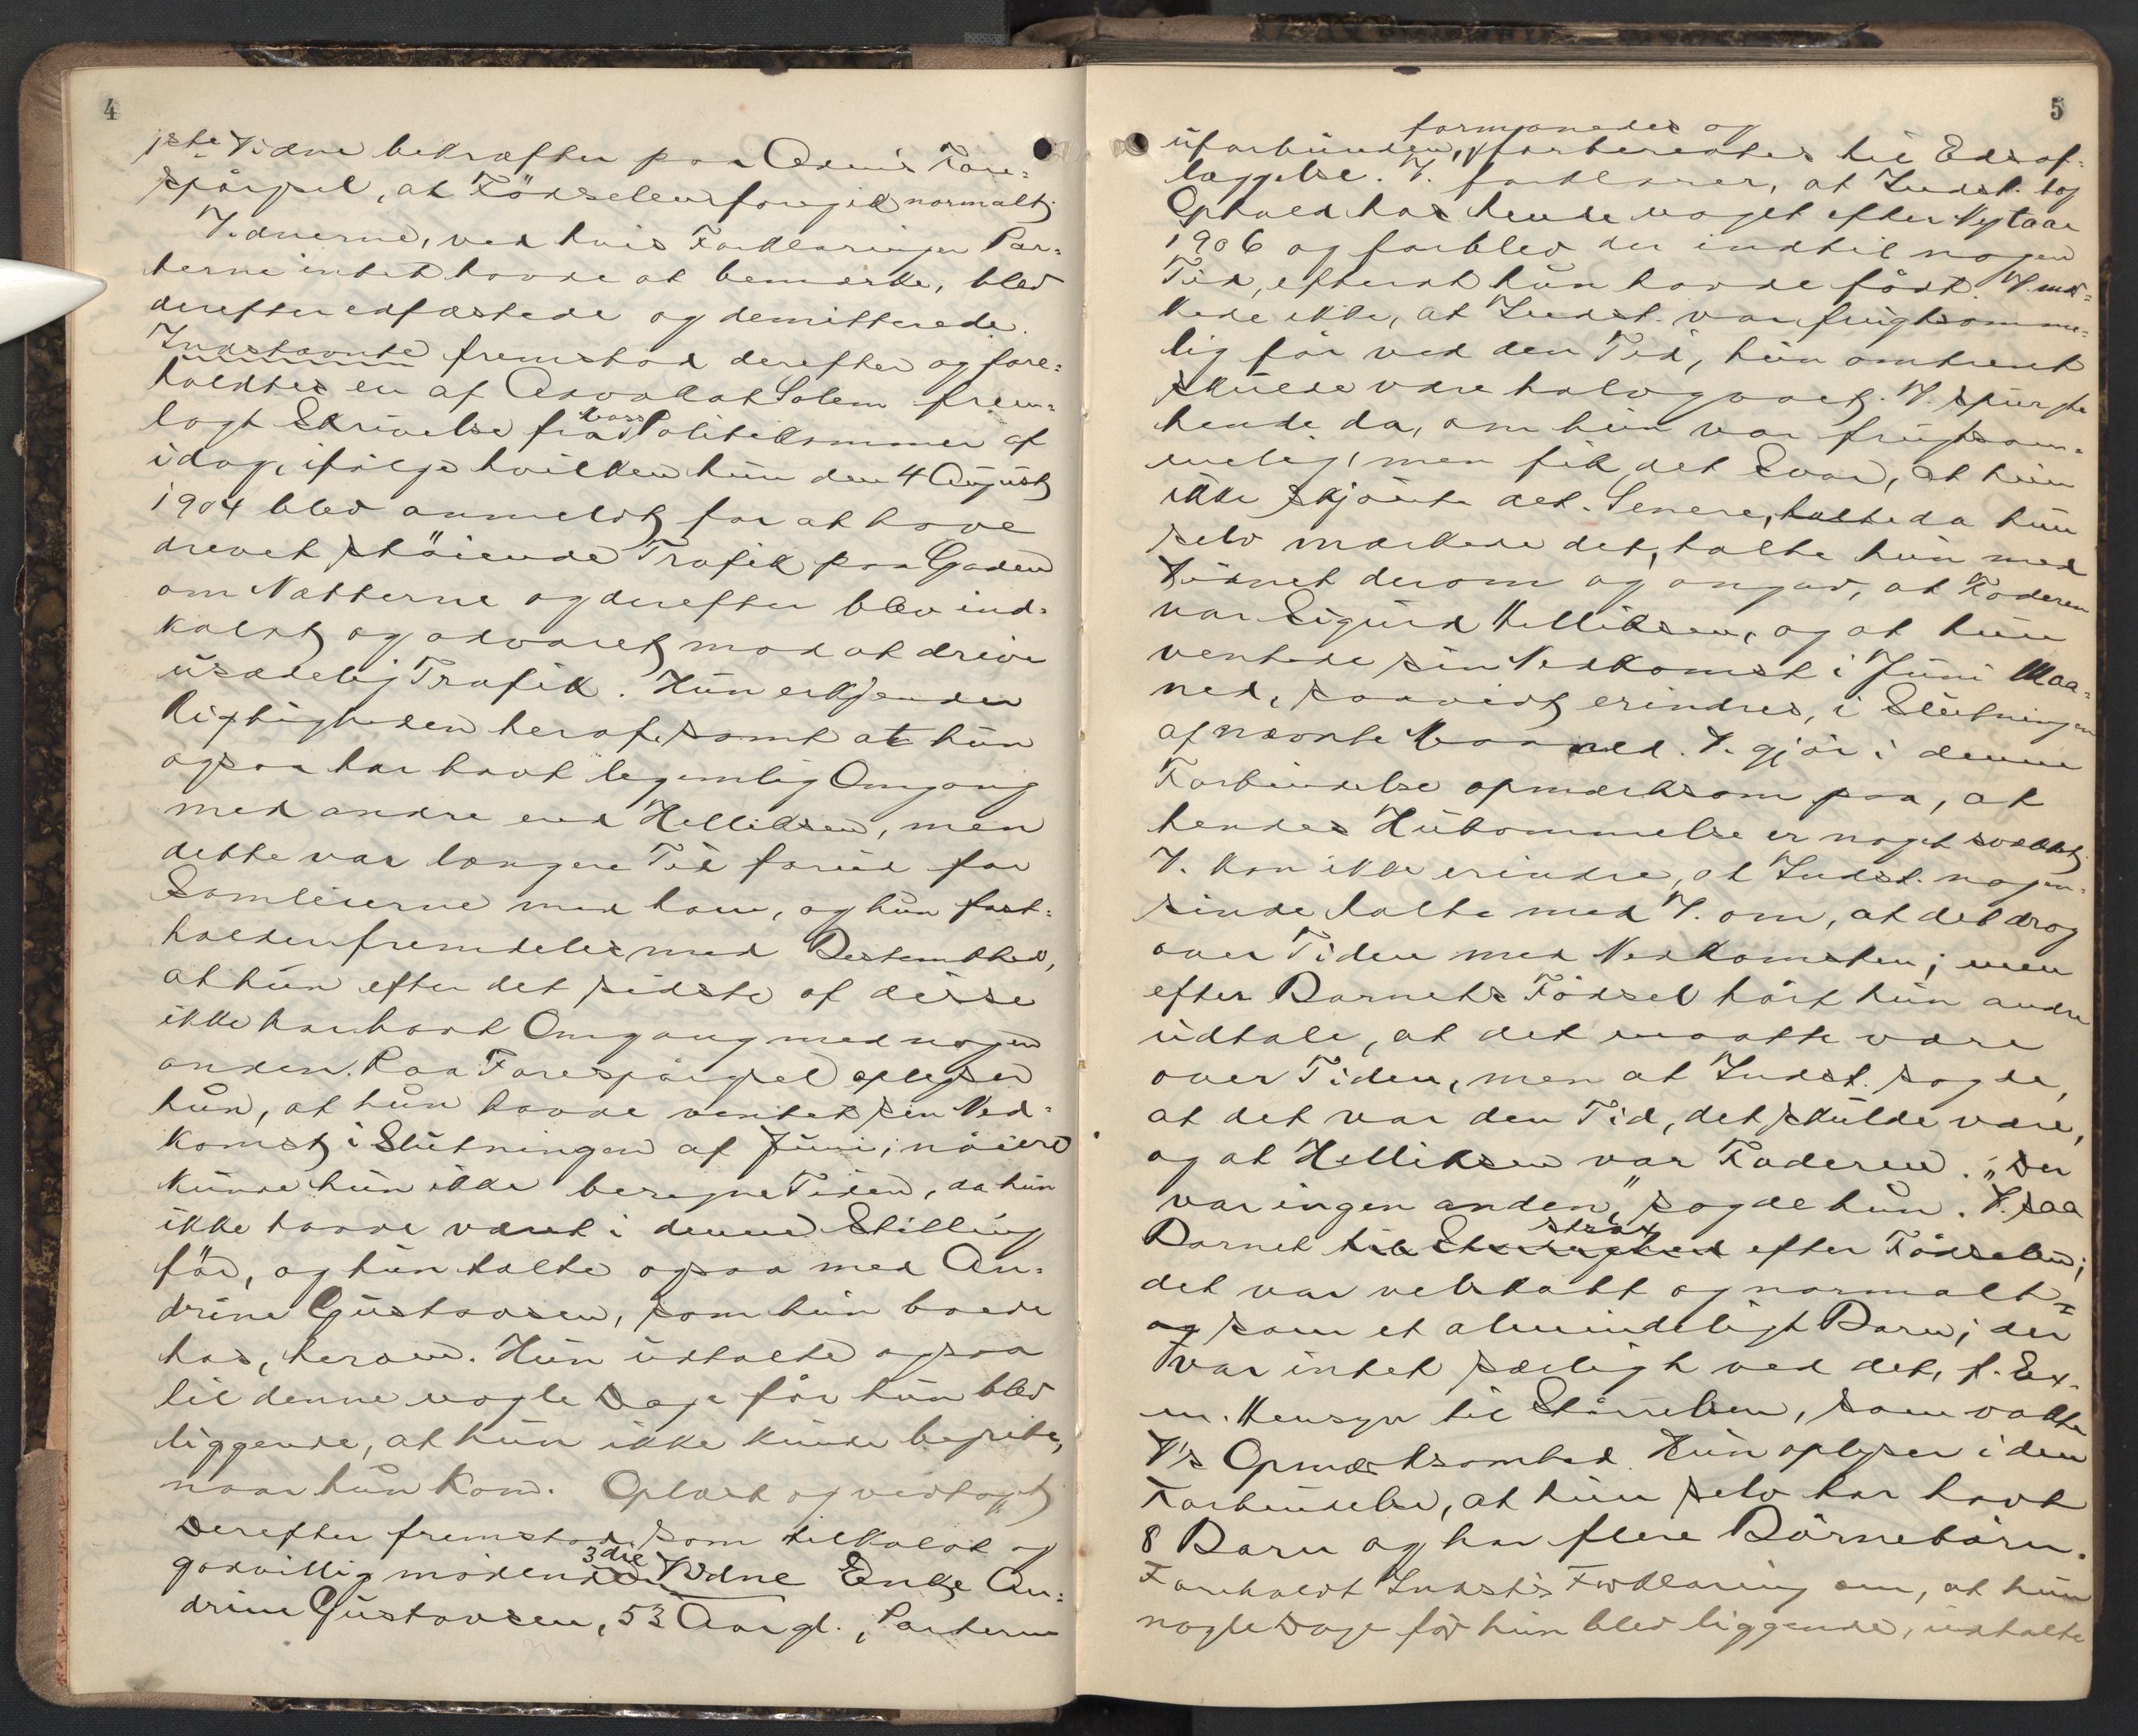 4
1ste Vidne bekræfter paa Adv.'s Fore-
spørgsel, at Fødselen foregik normalt.
Vidnerne, ved hvis Forklaringer Par-
terne intet havde at bemærke, blev
derefter edfæstede og demitterede.
Indstævnte fremstod derefter og fore-
holdtes en af Advokat Solem frem-
lagt Skrivelse fra Politikammer af
idag, ifølge hvilken hun den 4 August
1904 blev anmeldt for at have
drevet støiende Trafik paa Gaden
om Natterne og derefter blev ind-
kaldt og advaret mod at drive
usædelig Trafik. Hun erkjender
Rigtigheden heraf, samt at hun
ogsaa har havt legemlig Omgang
med andre end Helliksen, men
dette var længere Tid forud for
Samleierne med ham, og hun fast-
holder fremdeles med Bestemthed,
at hun efter det sidste af disse
ikke har havt Omgang med nogen
anden. Paa Forespørgsel oplyser
hun, at hun havde ventet sin Ned-
komst i Slutningen af Juni; nøiere
kunde hun ikke beregne Tiden, da hun
ikke havde været i denne Stilling
før, og hun talte ogsaa med An-
drine Gustavsen, som hun boede
hos, herom. Hun udtalte ogsaa
til denne nogle Dage før hun blev
liggende, at hun ikke kunde begribe,
naar hun kom. Oplæst og vedtaget
Derefter fremstod som tilkaldt og
godvillig mødende 3die Vidne Enke An-
drine Gustavsen, 53 Aar gl., Parterne
5
uforbunden, formanedes og forberedtes til Edsaf-
læggelse. V. forklarer, at Indst. tog
Ophold hos hende noget efter Nytaar
1906 og forblev der indtil nogen
Tid, efterat hun havde født. V. mær-
kede ikke, at Indst. var frugtsomme-
lig før ved den Tid, hun omtrent
skulde være halvgaaet. V. spurgte
hende da, om hun var frugtsom-
melig, men fik det Svar, at hun
ikke skjønte det. Senere, talte da hun
selv mærkede det, talte hun med
Vidnet derom og angav, at Faderen
var Sigurd Helliksen, og at hun
ventede sin Nedkomst i Juni Maa-
ned, saavidt erindres, i Slutningen
af nævnte Maaned. V. gjør i denne
Forbindelse opmærksom paa, at
hendes Hukommelse er noget svækket
V. kan ikke erindre, at Indst. nogen-
sinde talte med V. om, at det drog
over Tiden med Nedkomsten; men
efter Barnets Fødsel hørt hun andre
udtale, at det maatte være
over Tiden, men at Indst. sagde,
at det var den Tid, det skulde være,
og at Helliksen var Faderen. "Der
var ingen anden," sagde hun. V. saa
Barnet til strax efter Fødselen;
det var velskabt og normalt
og som et almindeligt Barn; der
var intet særligt ved det, f. Ex.
m. Hensyn til Størrelsen, som vakte
V's Opmærksomhed. Hun oplyser i den
Forbindelse, at hun selv har havt
8 Barn og har flere Børnebørn.
Foreholdt Indst's Forklaring om, at hun
nogle Dage før hun blev liggende, udtalte